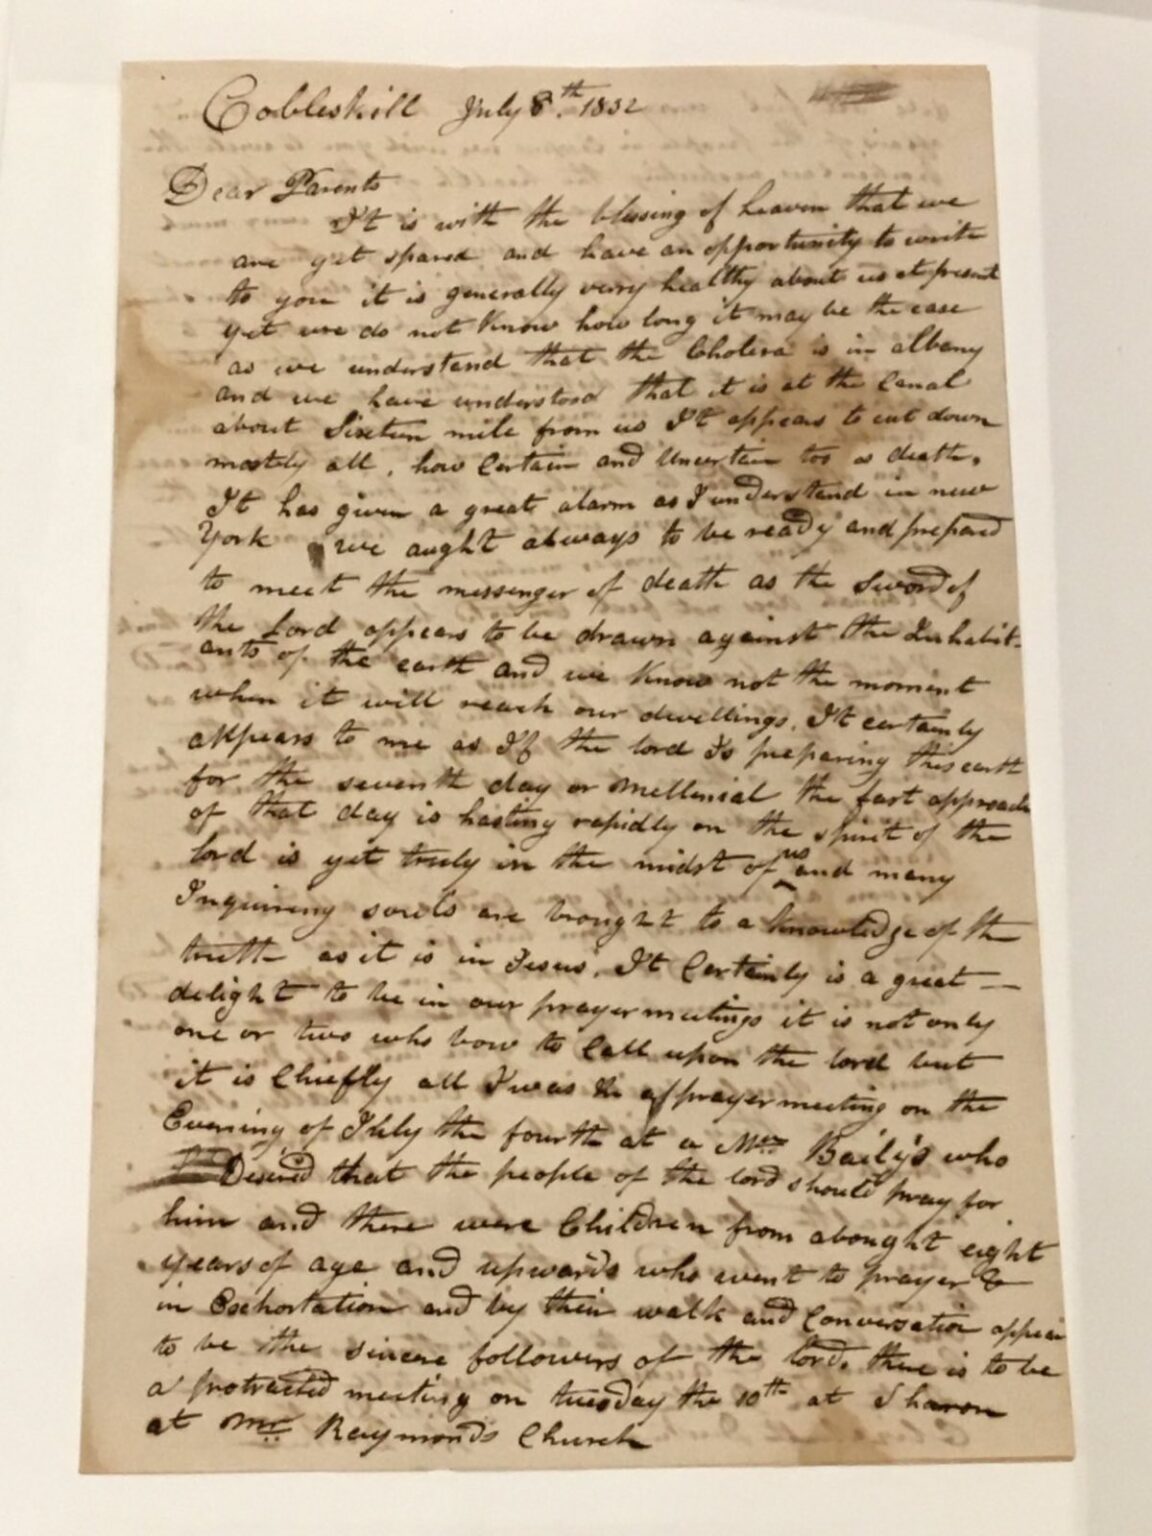 Cobleskill July 8.th 1832
Dear Parents
It is with the blessing of heaven that we
are yet spared and have an opportunity to write
to you it is generally verry healthy about us at present
yet we do not know how long it may be the case
as we understand that the Cholera is in albany
and we have understood that it is at the Canal
about Sixteen mile from us It appears to cut down
mostly all, how Certain and Uncertain too is death.
It has given a great alarm as I understand in new
York we aught always to be ready and prepared
to meet the messenger of death as the Sword of
the Lord appears to be drawn against the Inhabit-
ants of the earth and we know not the moment
when it will reach our dwellings. It certainly
appears to me as If the lord Is preparing this earth
for the seventh day or mellenial the fast approach
of that day is hasting rapidly on the spirit of the
lord is yet truly in the midst of us and many
Inquireing souls are brought to a knowledge of the
truth as it is in Jesus. It Certainly is a great —
delight to be in our prayer meetings it is not only
one or two who bow to Call upon the lord but
it is Chiefly all I was to a prayer meeting on the
Evening of July the fourth at a Mr Baily's who
Desired that the people of the lord should pray for
him and there were Children from abought eight
years of age and upwards who went to prayer &
in Exhortation and by their walk and Conversation appear
to be the sincere followers of the lord. there is to be
a protracted meeting on tuesday the 10th at Sharon
at Mr Raymonds Church